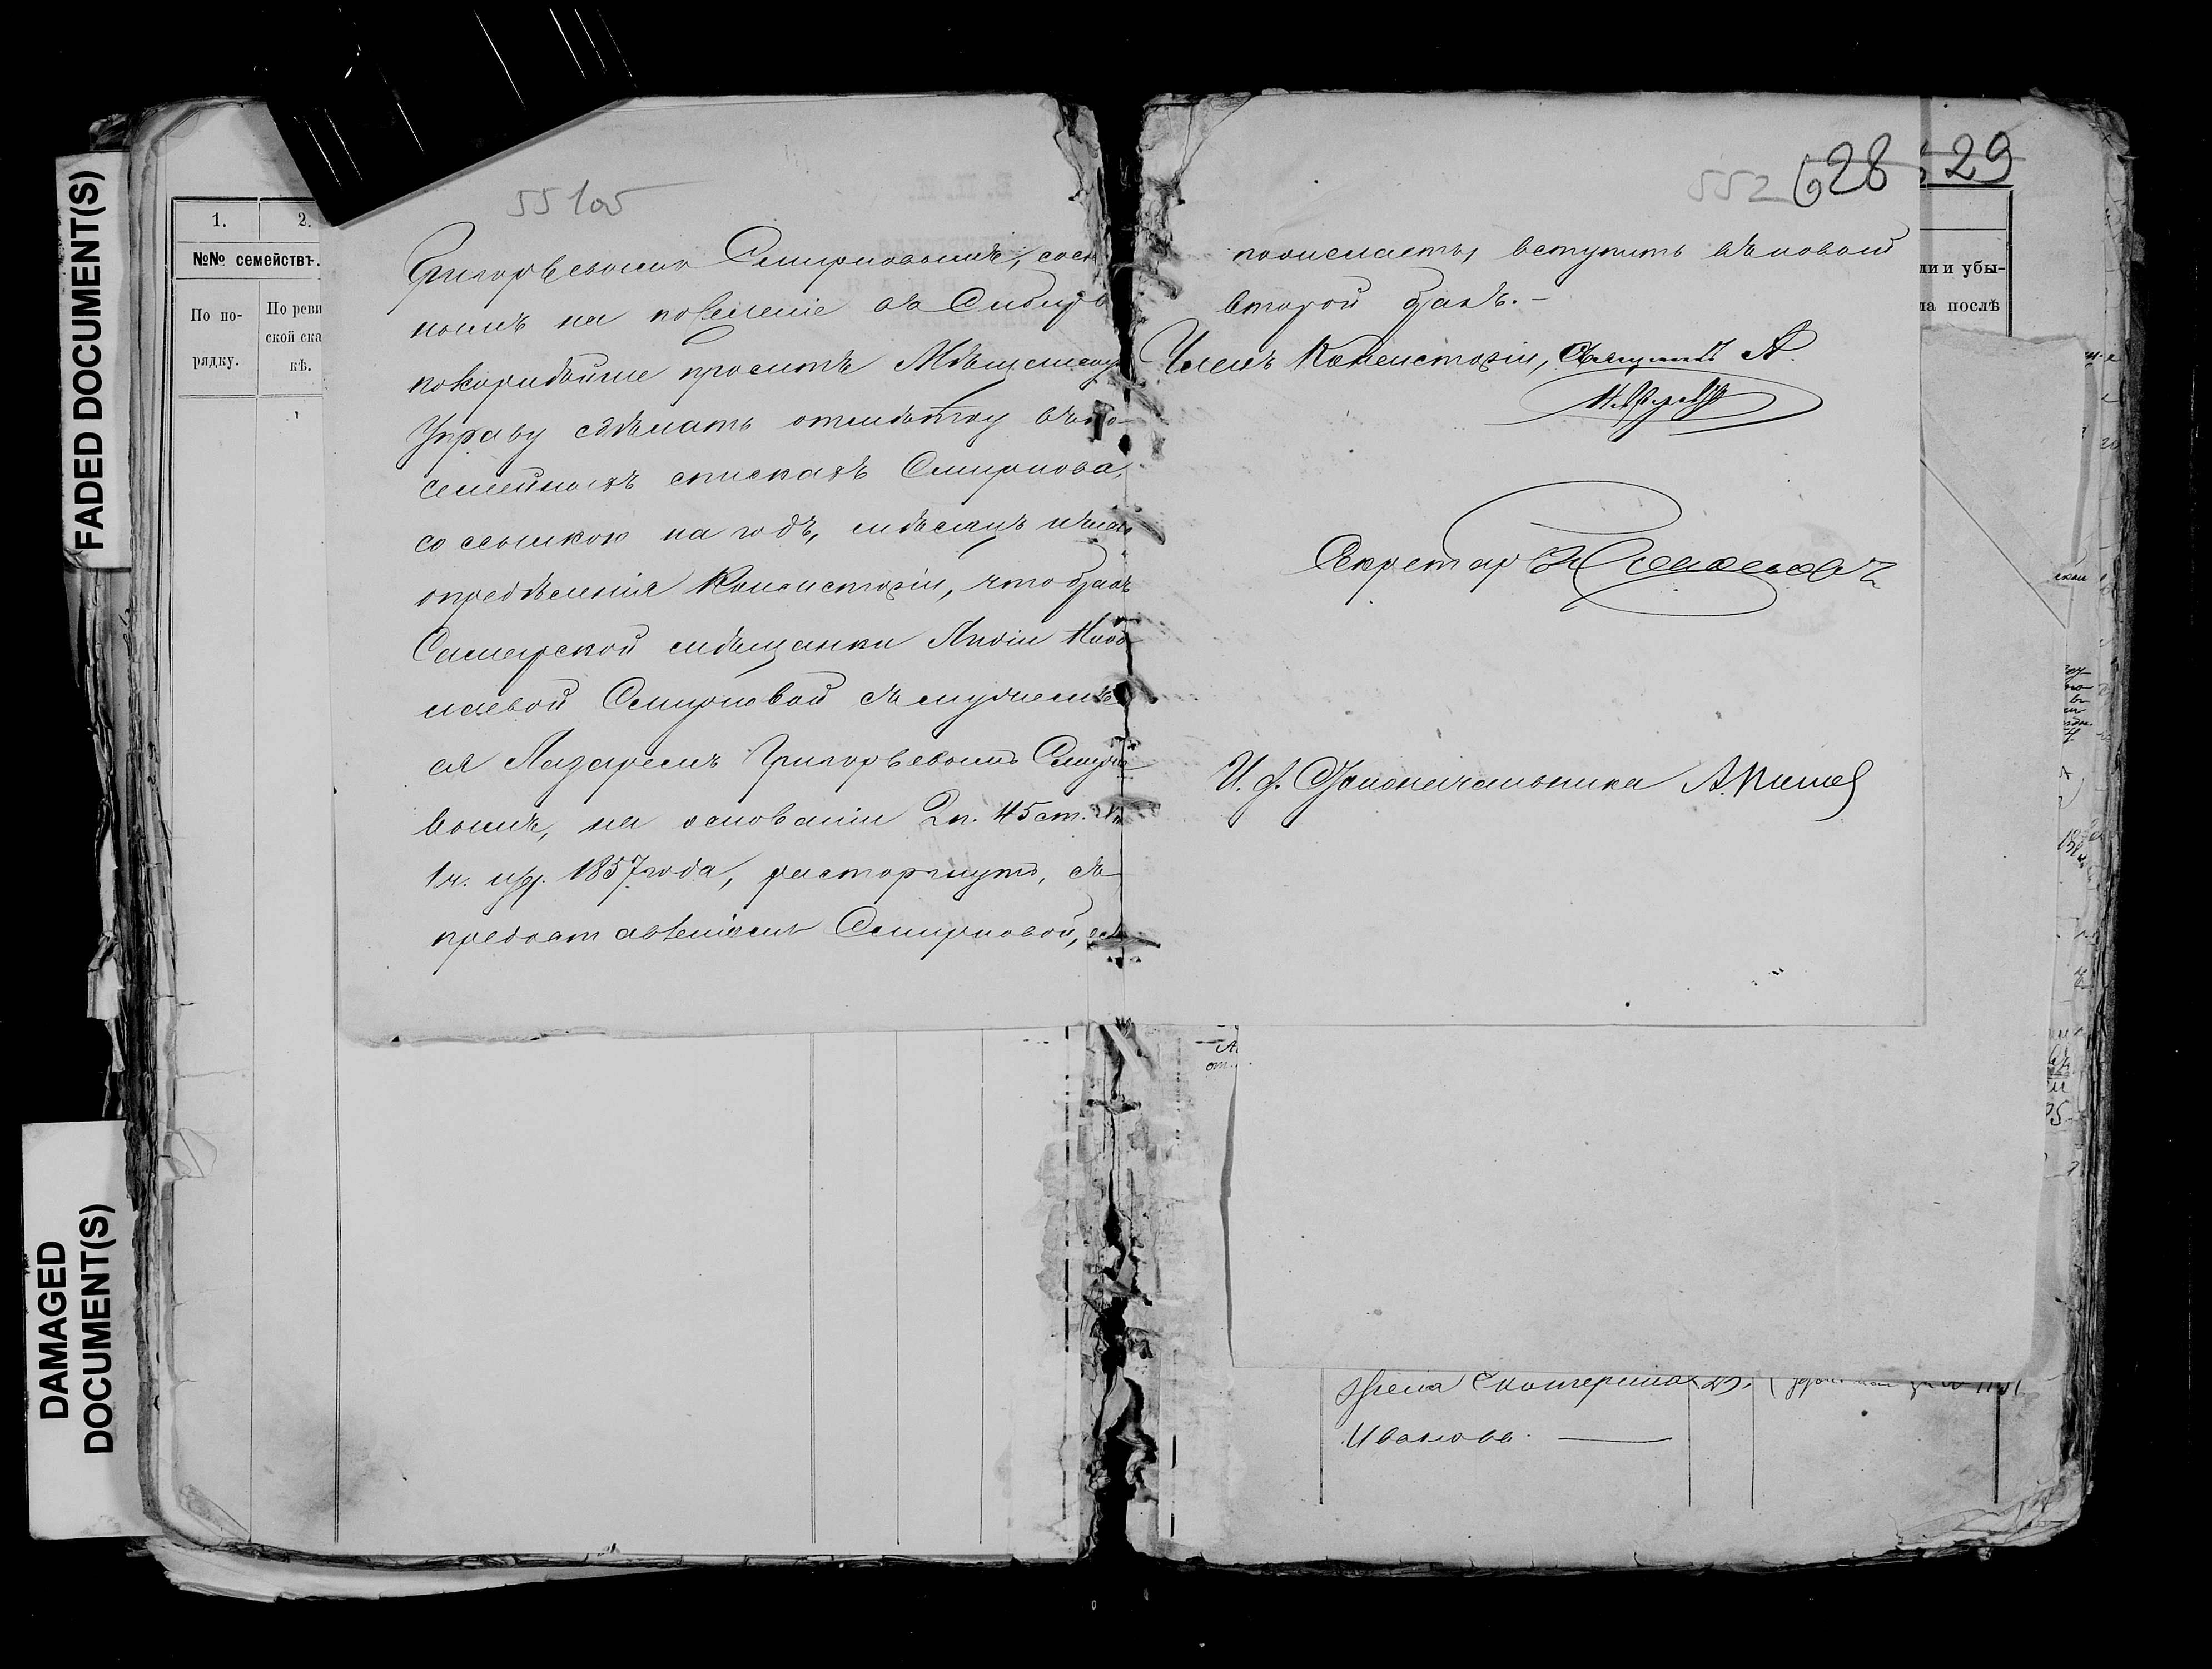 FADED DOCUMENT(S)
DAMAGED
DOCUMENT(S)
1. 2.
№№ семействъ.
По по-
рядку.
По реви
ской ска
кѣ.
55105
Григорьевымъ Смирновымъ, сосл
нымъ на поселеніе въ Сибирь
покорнѣйше проситъ Мѣщанскую
Управу сдѣлать отмѣтку въ по-
семейныхъ спискахъ Смирнова,
со ссылкою на годъ, мѣсяцъ и число
опредѣленія Консисторіи, что бракъ
Самарской мѣщанки Лидіи Нико
лаевой Смирновой съ мужемъ
ея Лазаремъ Григорьевымъ Смирно
вымъ, на основаніи 2 п. 45 ст.
1 ч. изд. 1857 года, расторгнутъ, съ
предоставленіемъ Смирновой,
552 628 29
пожелаетъ, вступить въ новый
второй бракъ.-
Членъ Консисторіи, Священникъ А.
Секретарь
И. д. Столоначальника А.
ли и убы-
ла послѣ
Жена Екатерина 29.
Иванова.